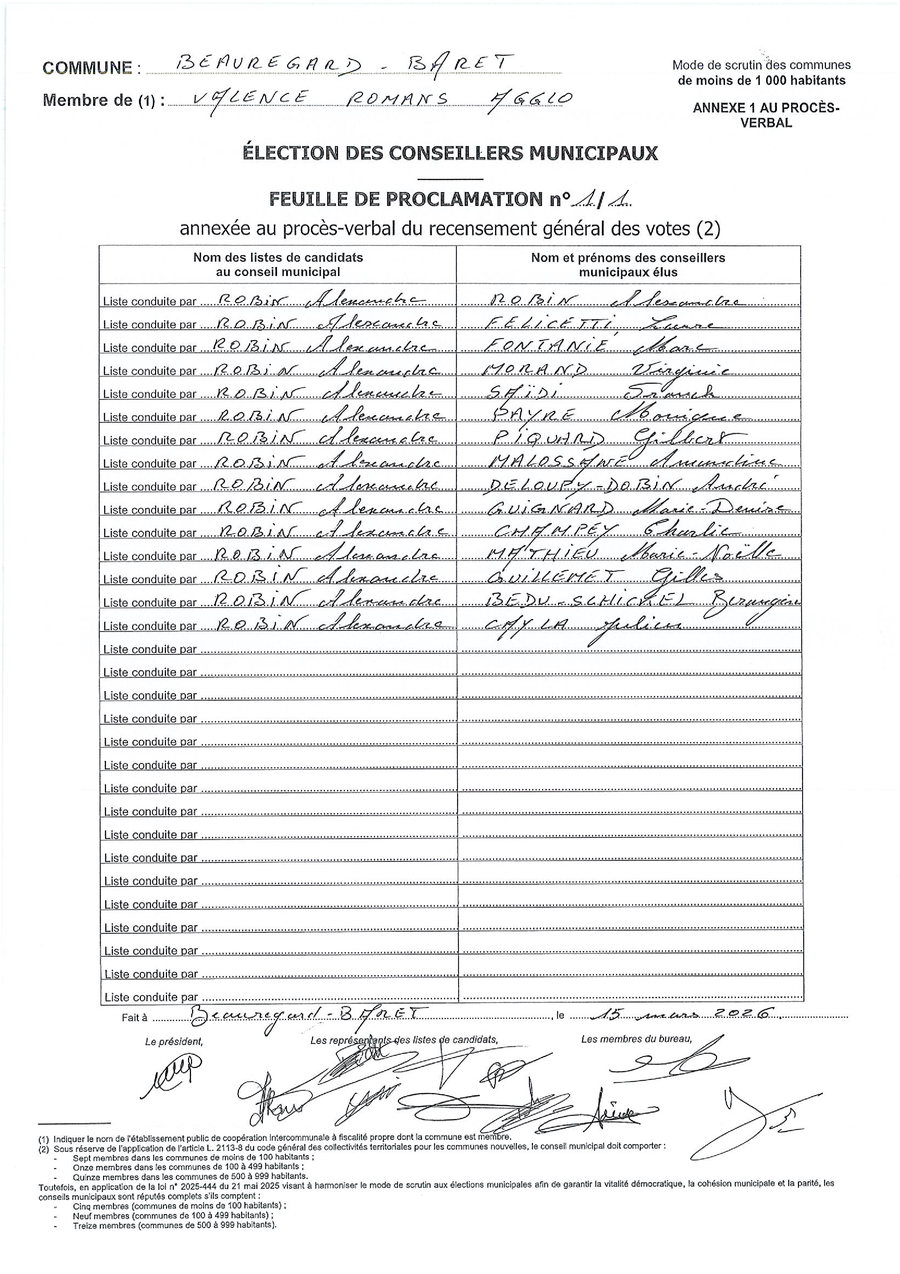 COMMUNE : BEAUREGARD - BARET
Membre de (1) : VALENCE ROMANS AGGLO
Mode de scrutin des communes
de moins de 1 000 habitants
ANNEXE 1 AU PROCÈS-
VERBAL
ÉLECTION DES CONSEILLERS MUNICIPAUX
FEUILLE DE PROCLAMATION n° 1/1
annexée au procès-verbal du recensement général des votes (2)
Nom des listes de candidats
au conseil municipal
Nom et prénoms des conseillers
municipaux élus
Liste conduite par ROBIN Alexandre ROBIN Alexandre
Liste conduite par ROBIN Alexandre FELICETTI, Laure
Liste conduite par ROBIN Alexandre FONTANIE Marc
Liste conduite par ROBIN Alexandre MORAND Virginie
Liste conduite par ROBIN Alexandre SAÏDI Franck
Liste conduite par ROBIN Alexandre PAYRE Monique
Liste conduite par ROBIN Alexandre PIQUARD Gilbert
Liste conduite par ROBIN Alexandre MALOSSANE Amandine
Liste conduite par ROBIN Alexandre DELOUPY-DOBIN André
Liste conduite par ROBIN Alexandre GUIGNARD Marie-Denise
Liste conduite par ROBIN Alexandre CHAMPEY Charlie
Liste conduite par ROBIN Alexandre MATHIEU Marie-Noëlle
Liste conduite par ROBIN Alexandre GUILLEMET Gilles
Liste conduite par ROBIN Alexandre BEDU-SCHICKEL Berangère
Liste conduite par ROBIN Alexandre CAYLA Julien
Liste conduite par
Liste conduite par
Liste conduite par
Liste conduite par
Liste conduite par
Liste conduite par
Liste conduite par
Liste conduite par
Liste conduite par
Liste conduite par
Liste conduite par
Liste conduite par
Liste conduite par
Liste conduite par
Liste conduite par
Liste conduite par
Fait à Beauregard-BARET, le 15 mars 2026
Le président,
Les représentants des listes de candidats,
Les membres du bureau,
(1) Indiquer le nom de l'établissement public de coopération intercommunale à fiscalité propre dont la commune est membre.
(2) Sous réserve de l'application de l'article L. 2113-8 du code général des collectivités territoriales pour les communes nouvelles, le conseil municipal doit comporter :
- Sept membres dans les communes de moins de 100 habitants ;
- Onze membres dans les communes de 100 à 499 habitants ;
- Quinze membres dans les communes de 500 à 999 habitants.
Toutefois, en application de la loi n° 2025-444 du 21 mai 2025 visant à harmoniser le mode de scrutin aux élections municipales afin de garantir la vitalité démocratique, la cohésion municipale et la parité, les
conseils municipaux sont réputés complets s'ils comptent :
- Cinq membres (communes de moins de 100 habitants) ;
- Neuf membres (communes de 100 à 499 habitants) ;
- Treize membres (communes de 500 à 999 habitants).